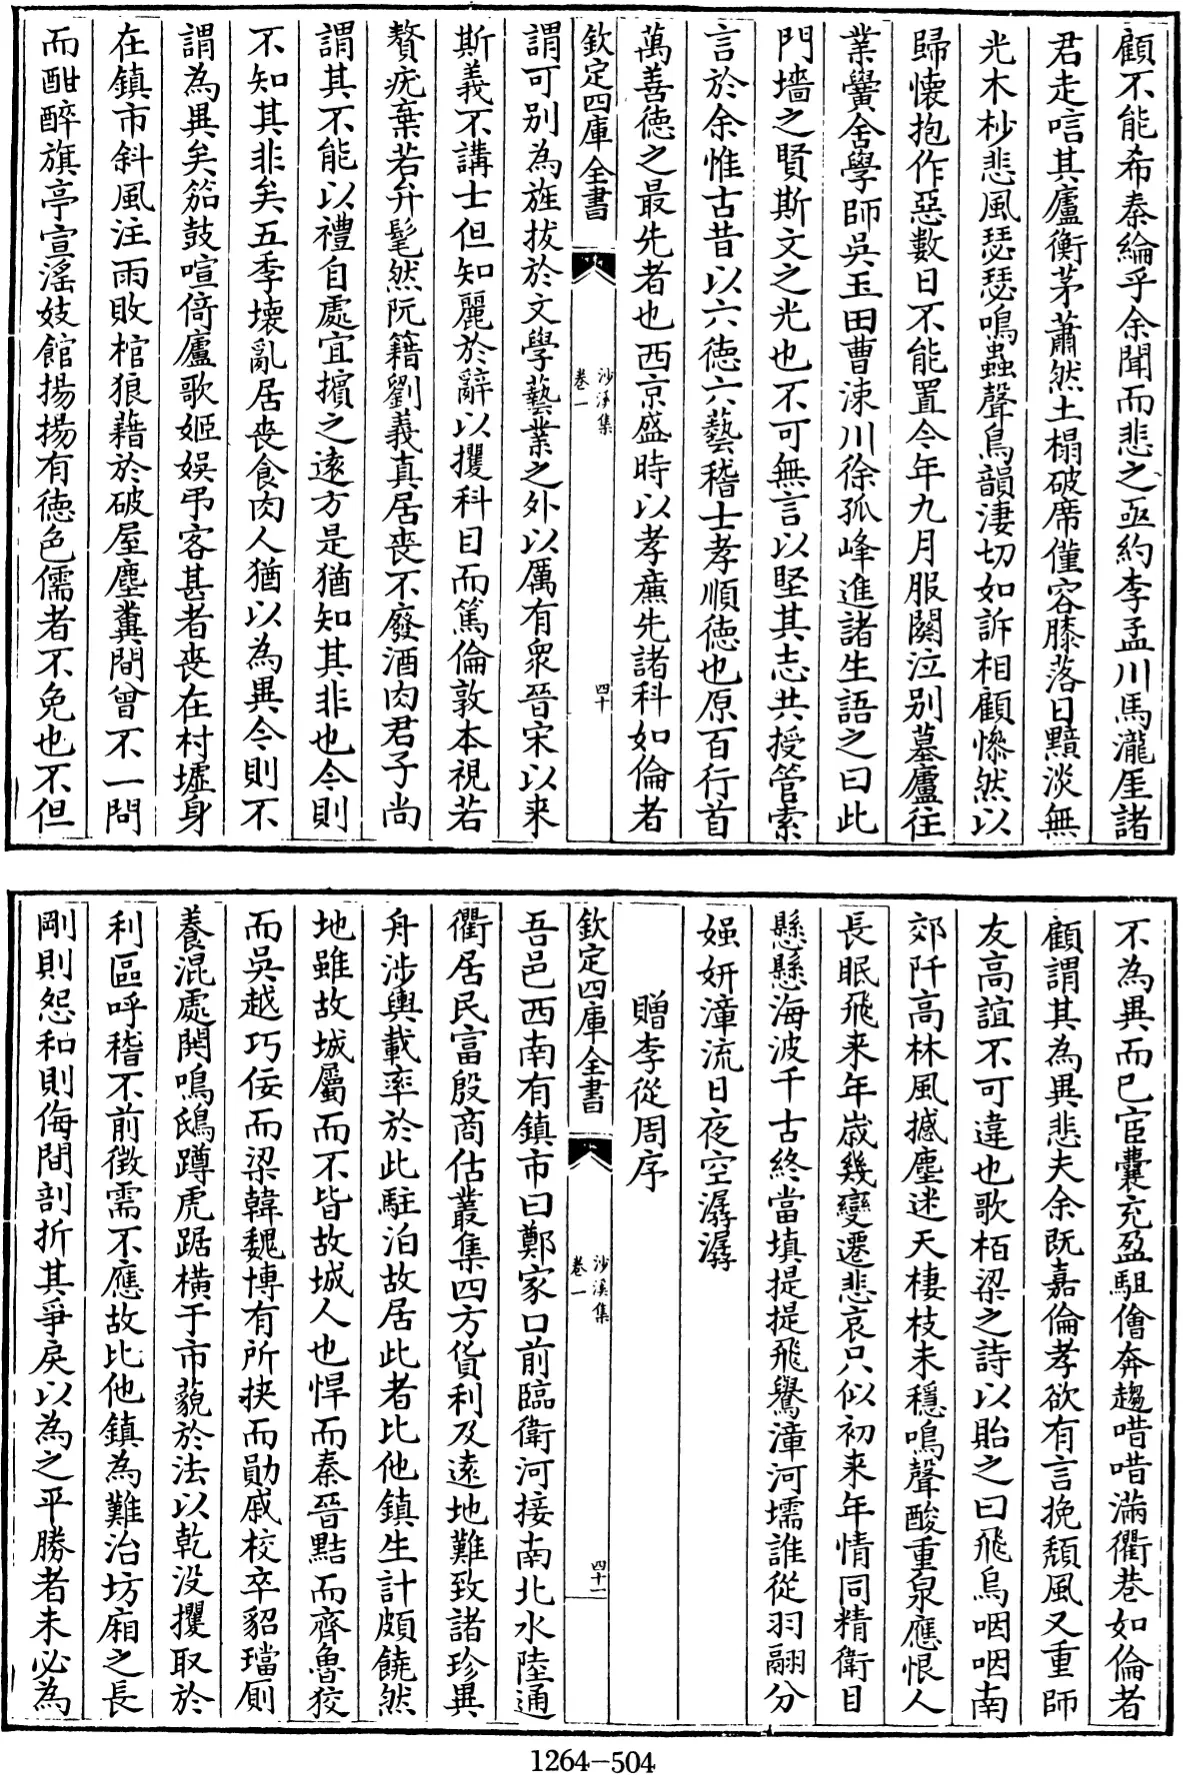 顧不能希秦綸乎余聞而悲之亟約李孟川馬瀧厓諸
君走唁其廬衡茅蕭然土榻破席僅容膝落日黯淡無
光木杪悲風瑟瑟鳴蟲聲鳥韻淒切如訴相顧慘然以
歸懷抱作惡數日不能置今年九月服闋泣别墓廬往
業黌舍學師吳玉田曹涑川徐孤峰進諸生語之曰此
門墻之賢斯文之光也不可無言以堅其志共授管索
言於余惟古昔以六德六藝稽士孝順德也原百行首
萬善德之最先者也西京盛時以孝廉先諸科如倫者
欽定四庫全書
沙溪集
卷一
四十
謂可别為旌拔於文學藝業之外以厲有衆晉宋以来
斯義不講士但知麗於辭以攫科目而篤倫敦本視若
贅疣棄若弁髦然阮籍劉義真居丧不廢酒肉君子尚
謂其不能以禮自處宜擯之遠方是猶知其非也今則
不知其非矣五季壞亂居丧食肉人猶以為異今則不
謂為異矣笳鼓喧倚廬歌姬娛弔客甚者丧在村墟身
在鎮市斜風注雨敗棺狼藉於破屋塵糞間曾不一問
而酣醉旗亭宣滛妓館揚揚有德色儒者不免也不但
不為異而已宦囊充盈駔儈奔趨唶唶滿衢巷如倫者
顧謂其為異悲夫余既嘉倫孝欲有言挽頽風又重師
友高誼不可違也歌栢梁之詩以貽之曰飛鳥咽咽南
郊阡高林風撼塵迷天棲枝未穩鳴聲酸重泉應恨人
長眠飛来年嵗幾變遷悲哀只似初来年情同精衛目
懸懸海波千古終當填提提飛鸒漳河壖誰從羽翮分
媸妍漳流日夜空潺潺
贈李從周序
欽定四庫全書
沙溪集
卷一
四十一
吾邑西南有鎮市曰鄭家口前臨衛河接南北水陸通
衢居民富殷商估叢集四方貨利及遠地難致諸珍異
舟涉輿載率於此駐泊故居此者比他鎮生計頗饒然
地雖故城屬而不皆故城人也悍而秦晉黠而齊魯狡
而吳越巧佞而梁韓魏博有所挾而勛戚校卒貂璫厠
養混處鬨鳴鴟蹲虎踞橫于市藐於法以乾没攫取於
利區呼稽不前徵需不應故比他鎮為難治坊廂之長
剛則怨和則侮間剖折其爭戾以為之平勝者未必為
1264-504